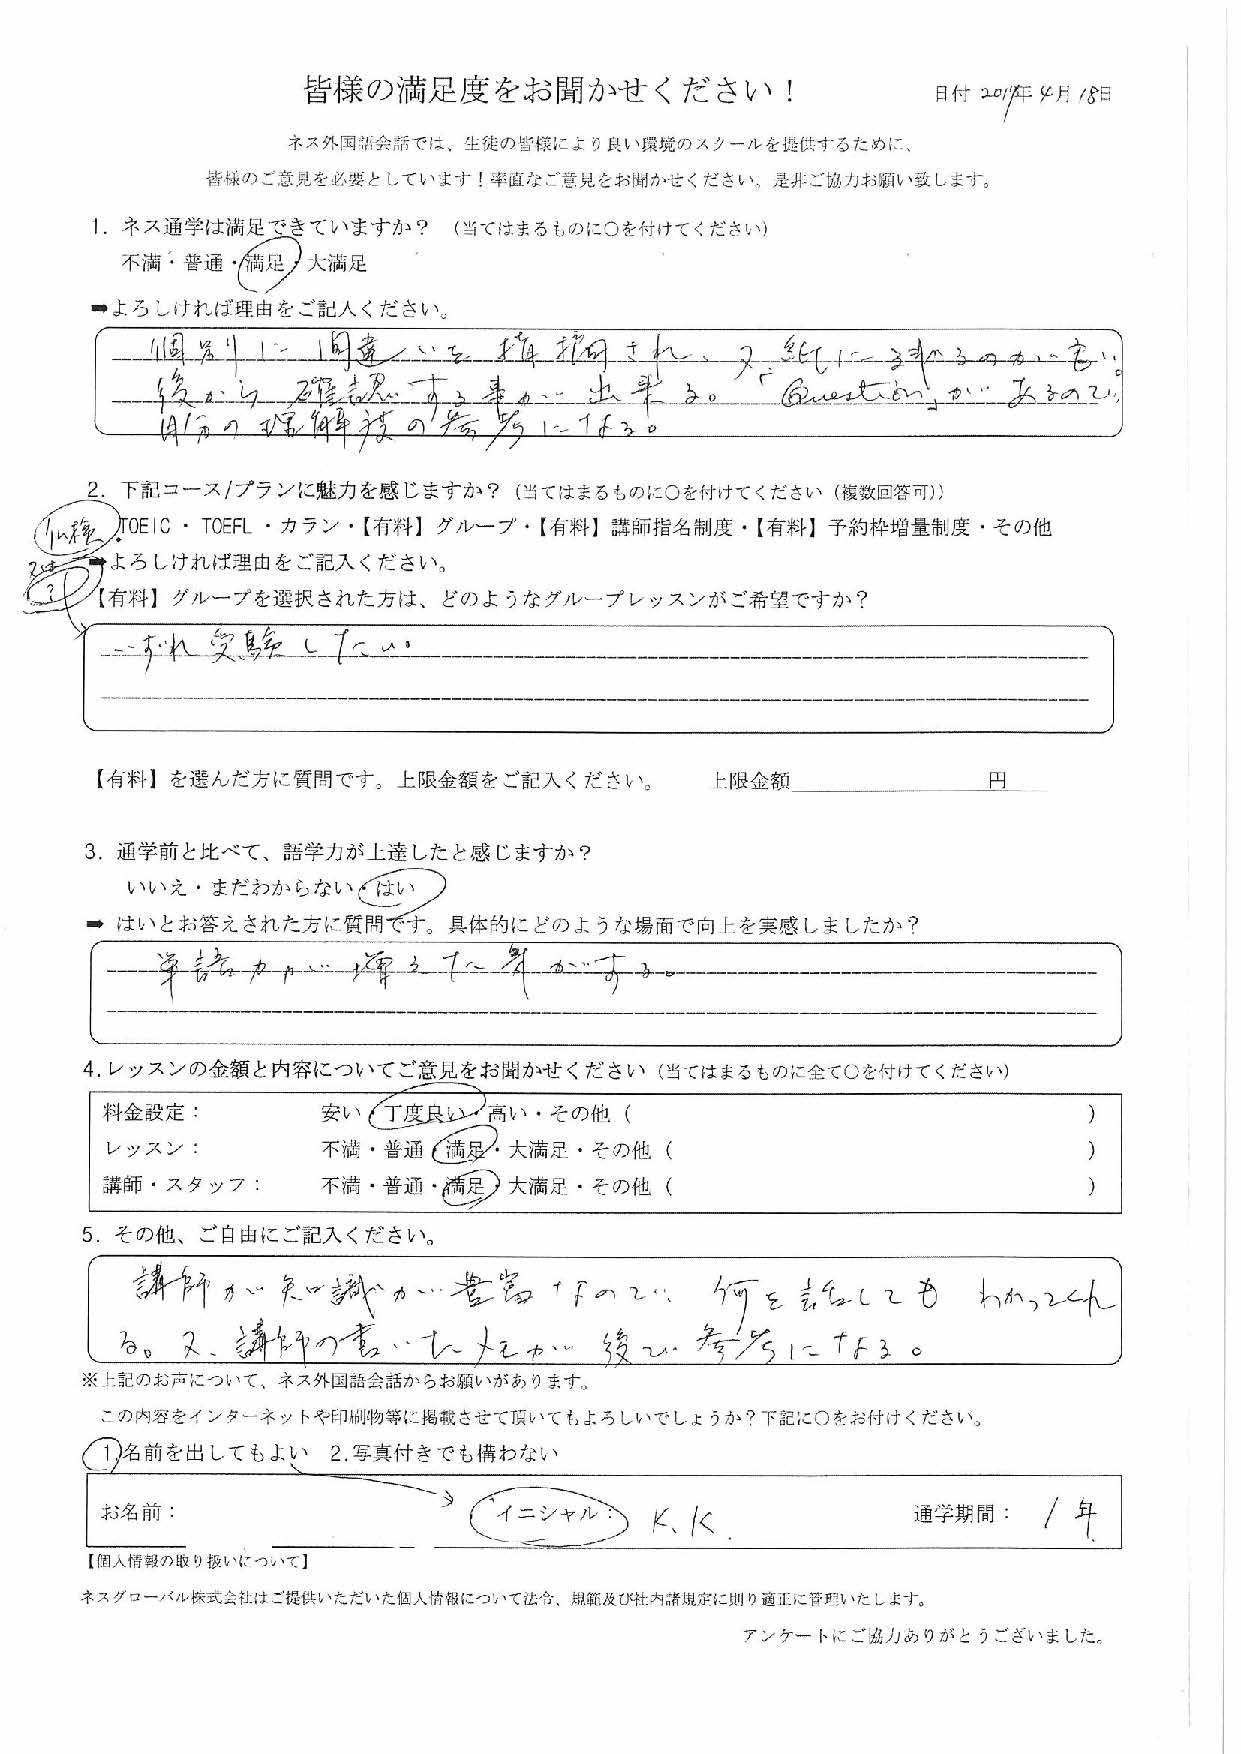 皆様の満足度をお聞かせください！
日付 2019年 4月 18日
ネス外国語会話では、生徒の皆様により良い環境のスクールを提供するために、
皆様のご意見を必要としています！率直なご意見をお聞かせください。是非ご協力お願い致します。
1. ネス通学は満足できていますか？ （当てはまるものに〇を付けてください）
不満・普通・満足・大満足
➡よろしければ理由をご記入ください。
個別に間違いを指摘され、又紙に残るのが良い。
後から確認する事が出来る。「Question」があるので、
自分の理解度の参考になる。
2. 下記コース/プランに魅力を感じますか？（当てはまるものに〇を付けてください（複数回答可））
仏検 TOEIC・TOEFL・カラン・【有料】グループ・【有料】講師指名制度・【有料】予約枠増量制度・その他
➡よろしければ理由をご記入ください。
【有料】グループを選択された方は、どのようなグループレッスンがご希望ですか？
いずれ受験したい。
【有料】を選んだ方に質問です。上限金額をご記入ください。 上限金額 円
3. 通学前と比べて、語学力が上達したと感じますか？
いいえ・まだわからない・はい
➡ はいとお答えされた方に質問です。具体的にどのような場面で向上を実感しましたか？
単語力が増えた気がする。
4. レッスンの金額と内容についてご意見をお聞かせください（当てはまるものに全て〇を付けてください）
料金設定： 安い・丁度良い・高い・その他（ ）
レッスン： 不満・普通・満足・大満足・その他（ ）
講師・スタッフ： 不満・普通・満足・大満足・その他（ ）
5. その他、ご自由にご記入ください。
講師が知識が豊富なので、何を話してもわかってくれ
る。又、講師の書いたメモが後で参考になる。
※上記のお声について、ネス外国語会話からお願いがあります。
この内容をインターネットや印刷物等に掲載させて頂いてもよろしいでしょうか？下記に〇をお付けください。
1.名前を出してもよい 2.写真付きでも構わない
お名前： イニシャル： K.K. 通学期間： 1年
【個人情報の取り扱いについて】
ネスグローバル株式会社はご提供いただいた個人情報について法令、規範及び社内諸規定に則り適正に管理いたします。
アンケートにご協力ありがとうございました。